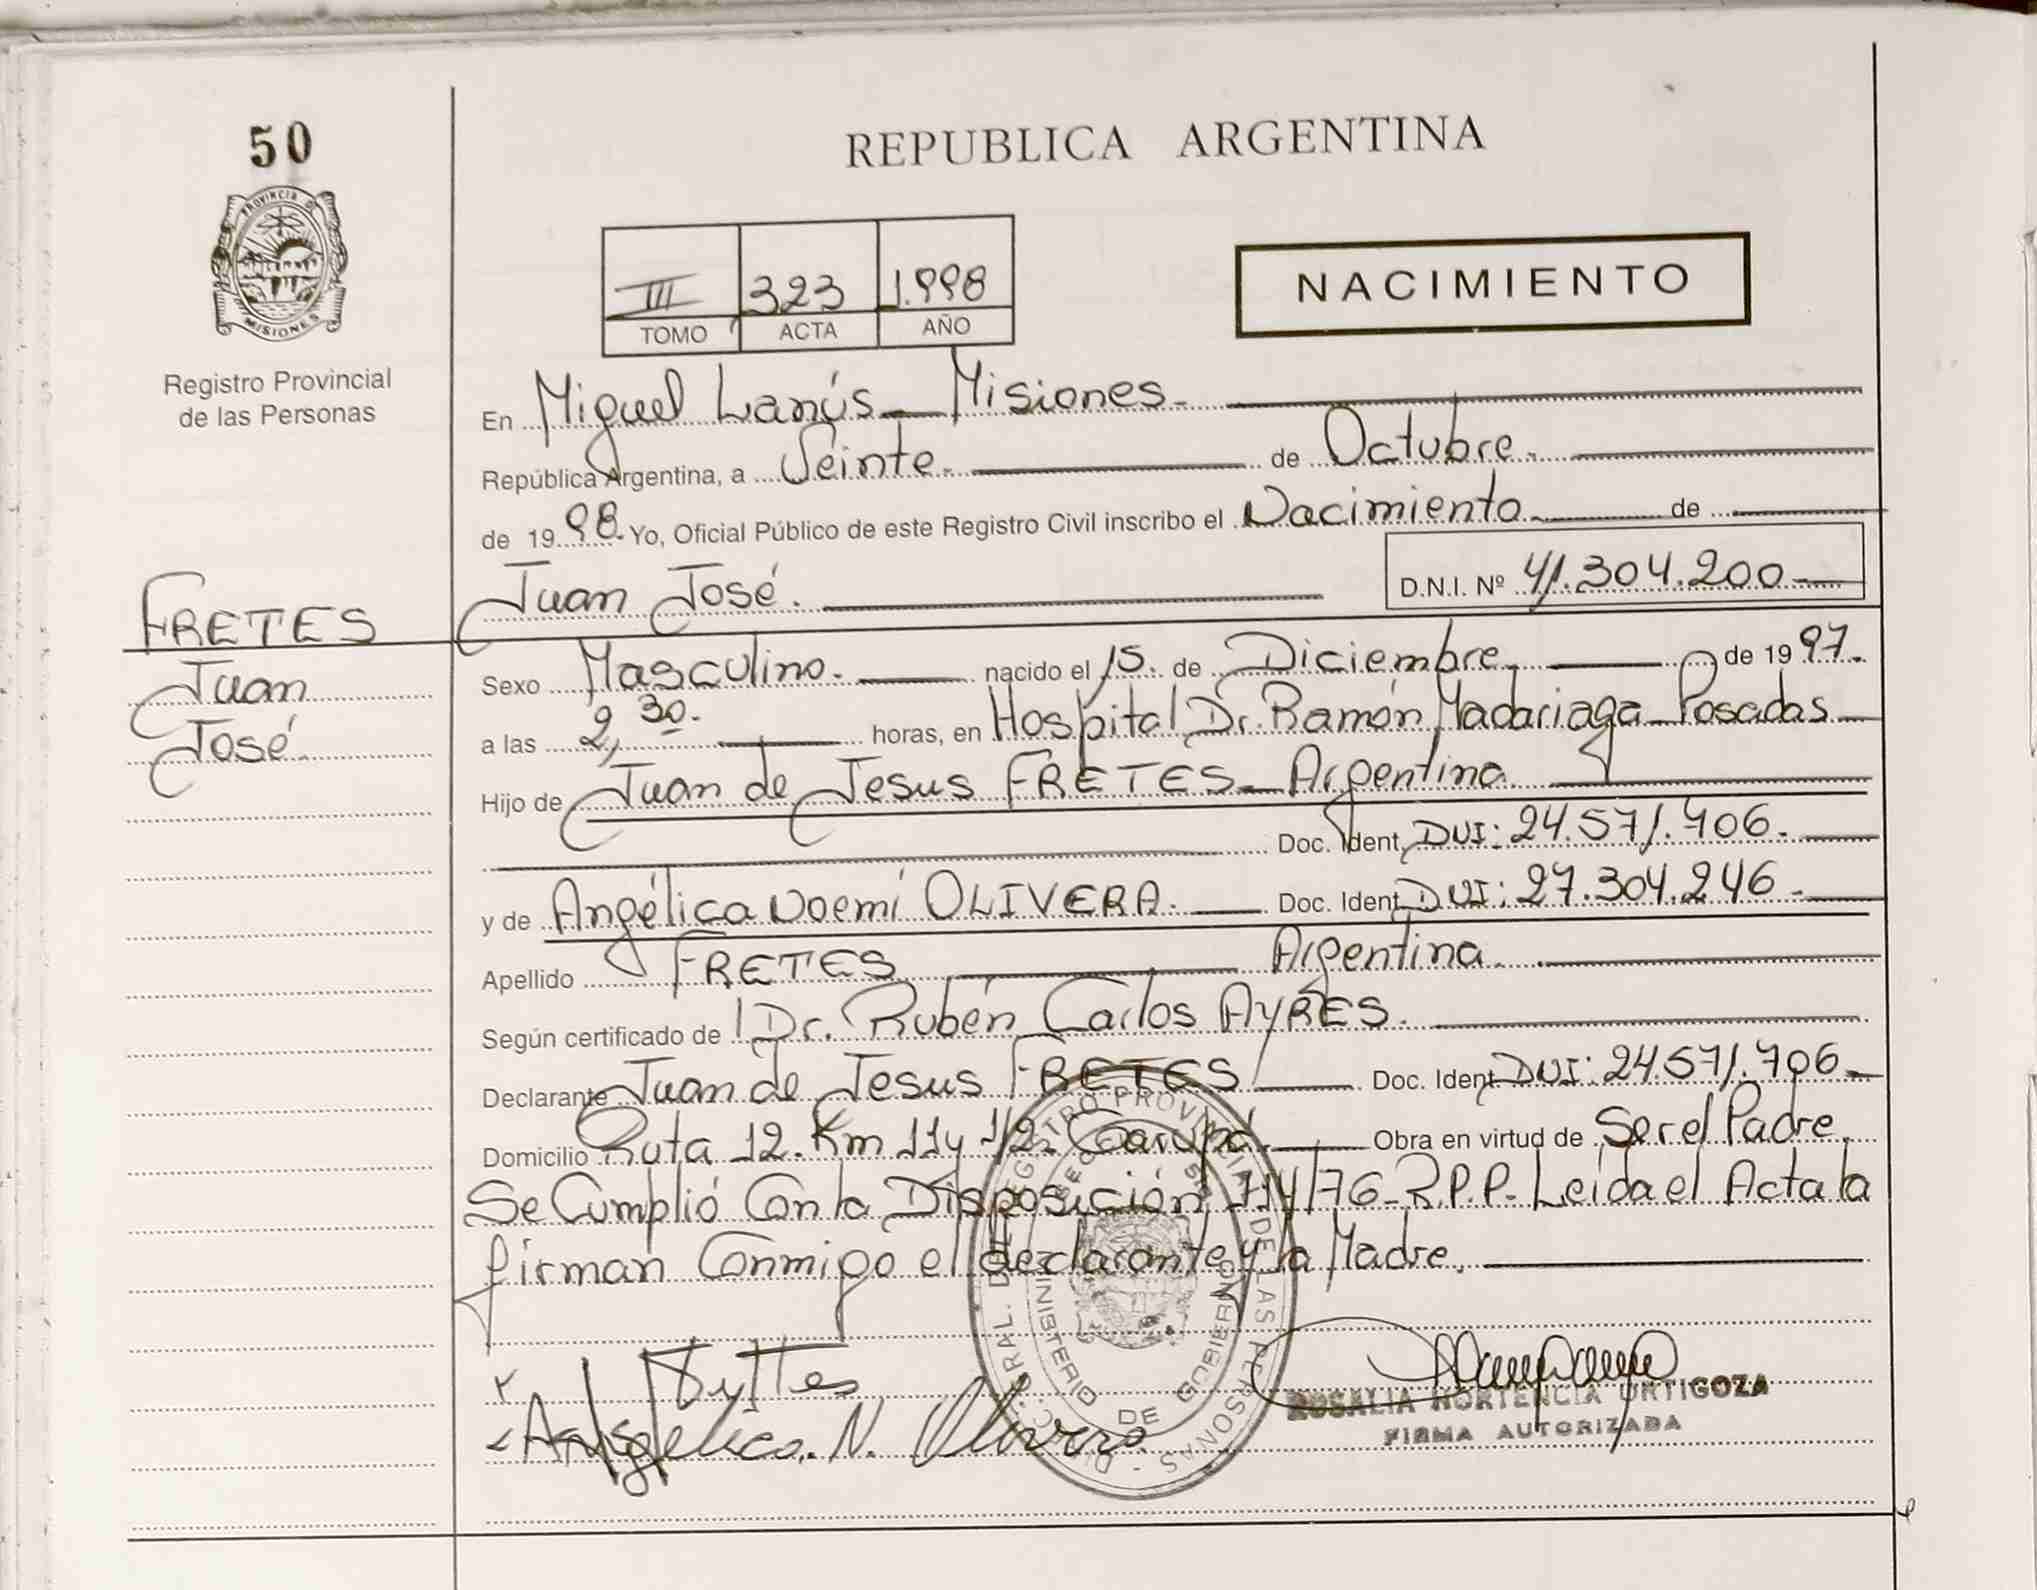 50
PROVINCIA D
MISIONES
Registro Provincial
de las Personas
FRETES
Juan
José.
REPUBLICA ARGENTINA
III 323 1.998
TOMO ACTA AÑO
NACIMIENTO
En Miguel Lanús - Misiones.
República Argentina, a Veinte. de Octubre.
de 19 98. Yo, Oficial Público de este Registro Civil inscribo el Nacimiento de
Juan José. D.N.I. Nº 41.304.200
Sexo Masculino. nacido el 15. de Diciembre. de 19 97.
a las 2,30. horas, en Hospital Dr. Ramón Madariaga Posadas
Hijo de Juan de Jesus FRETES - Argentina
Doc. Ident. DUI: 24.571.706.
y de Angélica Noemí OLIVERA. Doc. Ident. DUI: 27.304.246
Apellido FRETES Argentina.
Según certificado de Dr. Rubén Carlos AYRES.
Declarante Juan de Jesus FRETES Doc. Ident. DUI: 24.571.706
Domicilio Ruta 12. Km 11 y 1/2. Garupá. Obra en virtud de Ser el Padre.
Se Cumplió Con la Disposición /76 - R.P.P. Leida el Acta la
firman Conmigo el declarante y la Madre.
Angelica. N. Olivera
ROSALIA HORTENCIA ORTIGOZA
FIRMA AUTORIZADA
REGISTRO PROVINCIAL DE LAS PERSONAS
MINISTERIO DE GOBIERNO